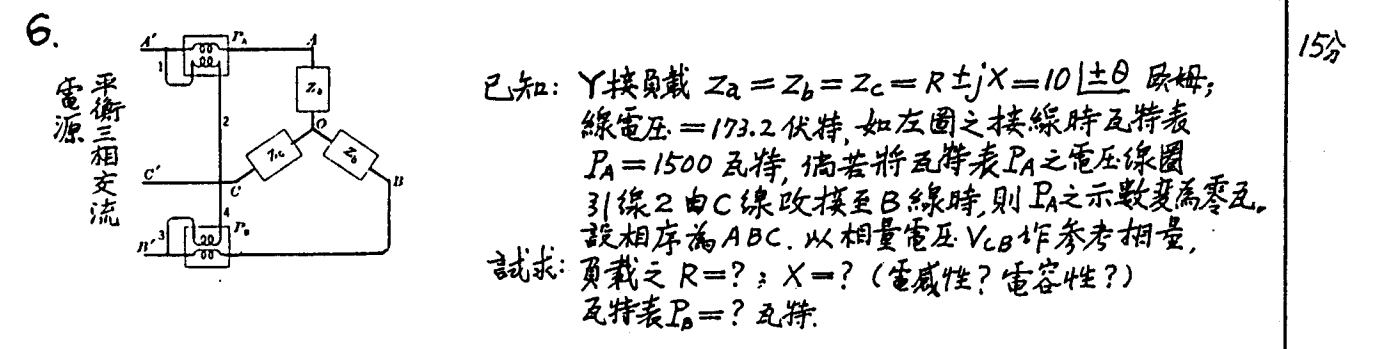 6.
15分
平衡三相交流
電源
A'
P_A
A
1
Z_a
2
O
Z_c
Z_b
C'
C
B
4
3
P_B
B'
已知: Y接負載 Za = Zb = Zc = R ± jX = 10∠±θ 歐姆;
線電压 = 173.2 伏特, 如左圖之接線時瓦特表
P_A = 1500 瓦特, 倘若將瓦特表P_A之電压線圈
引線2由C線改接至B線時, 則P_A之示數変為零瓦。
設相序為ABC. 以相量電压V_CB作参考相量,
試求: 負載之 R = ? ; X = ? (電感性? 電容性?)
瓦特表P_B = ? 瓦特.